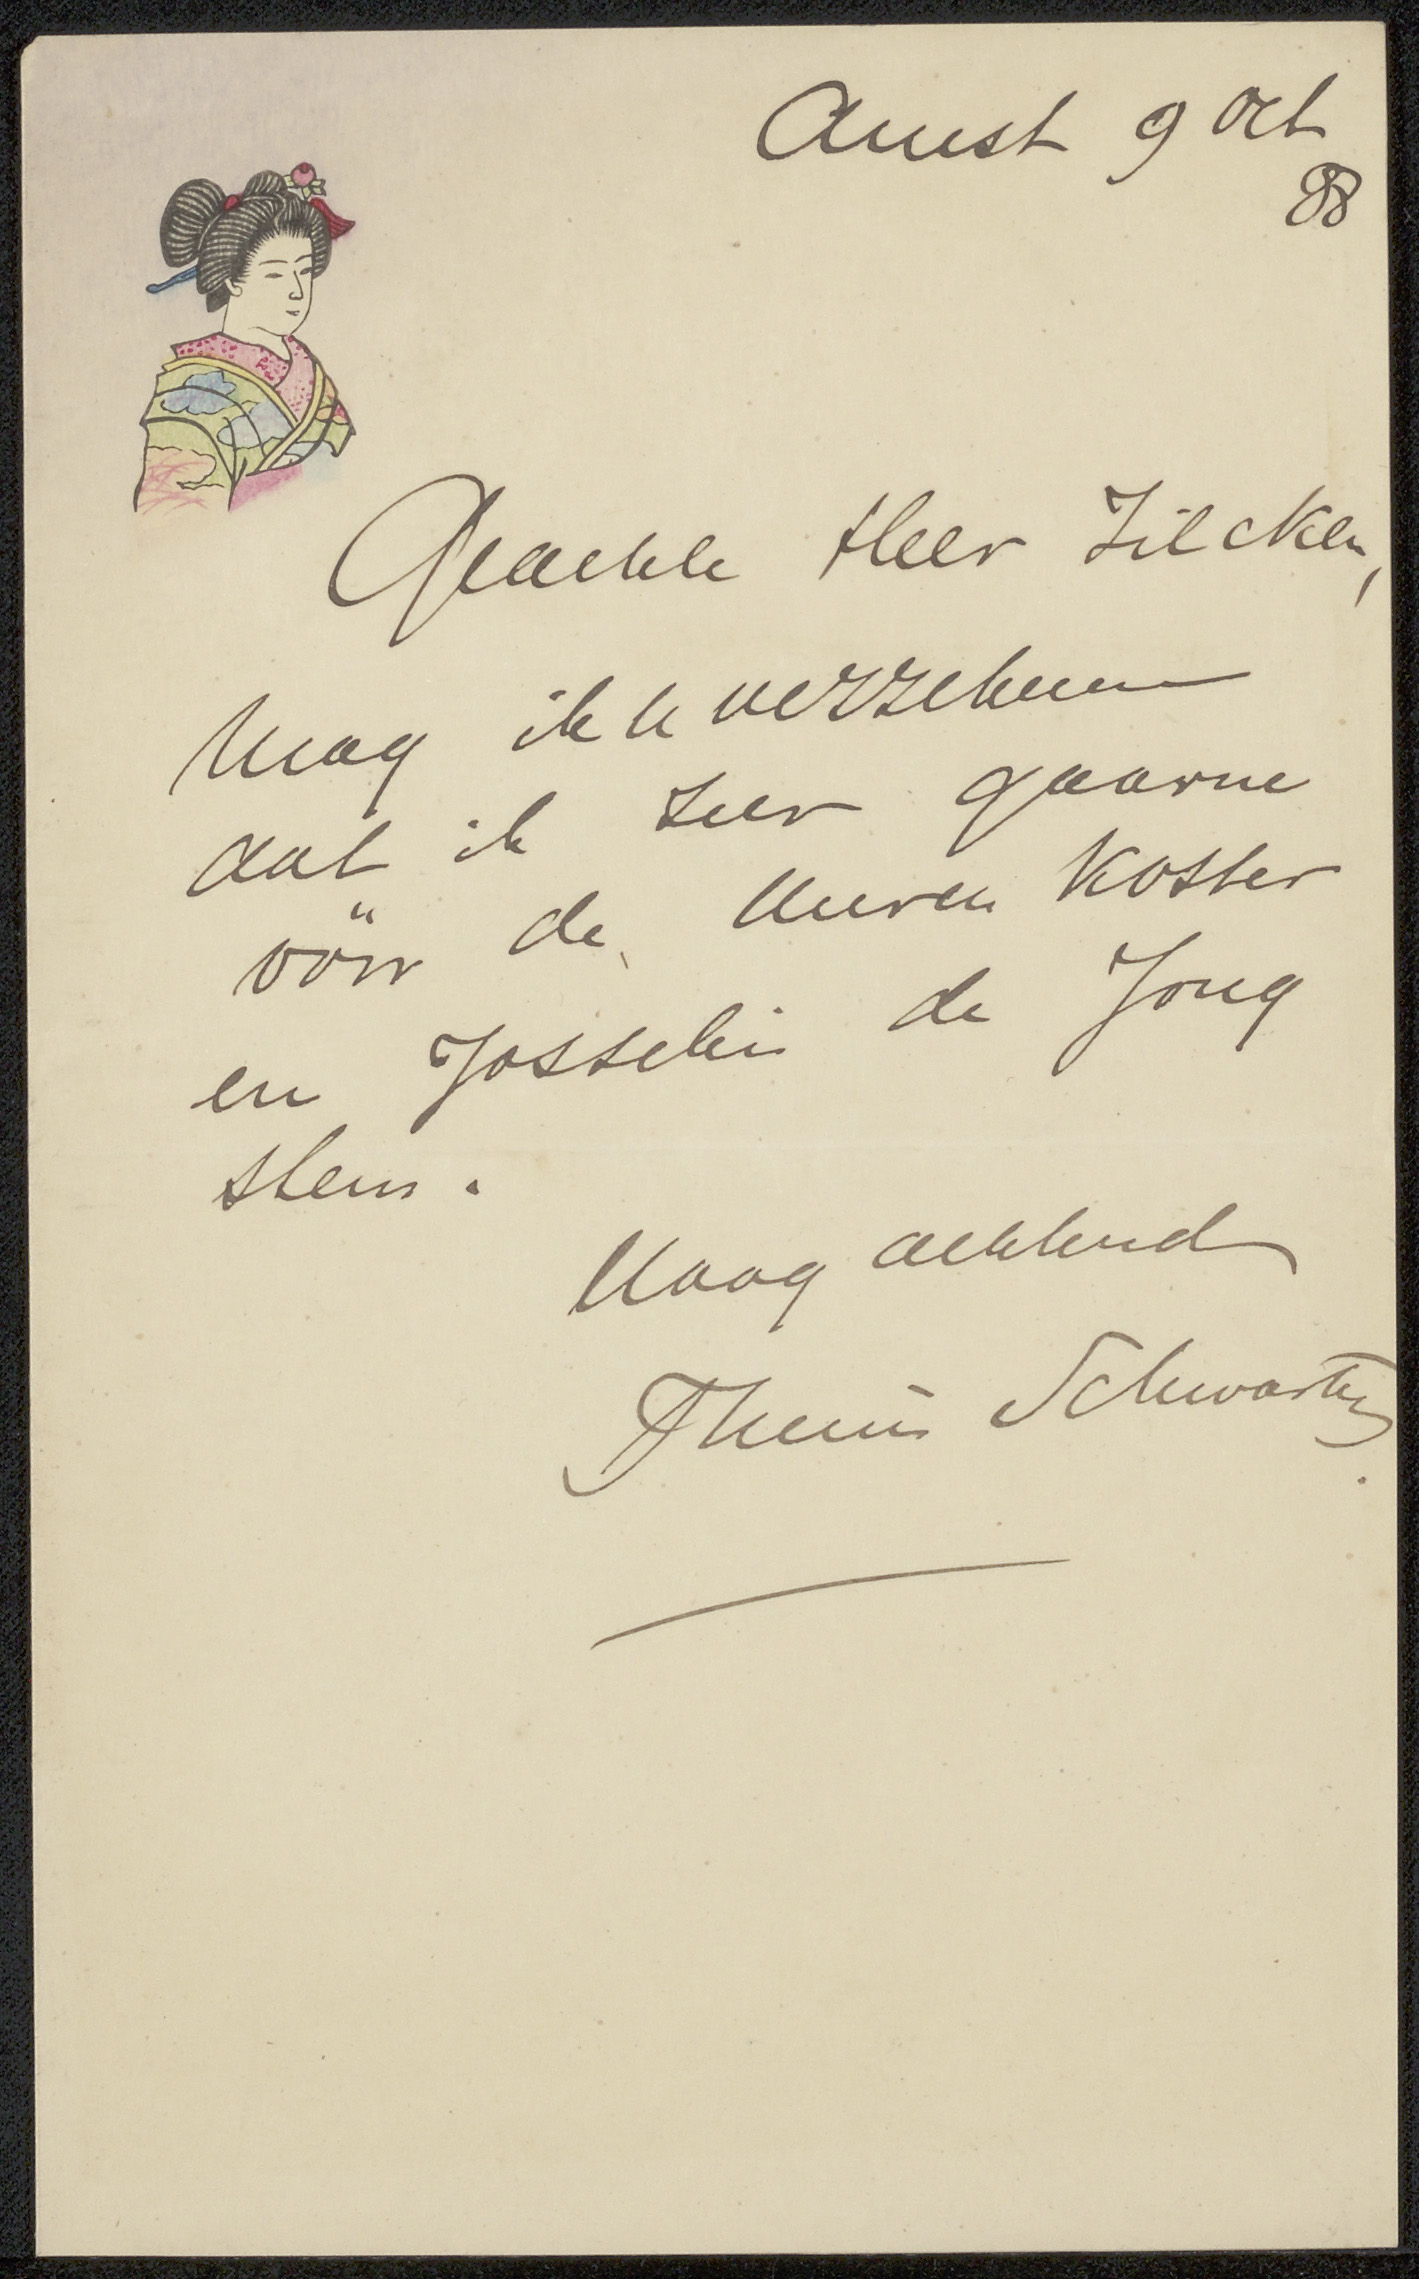 Amst 9 Oct
88
Geachte Heer Zilcken,
Mag ik u verzekeren
dat ik zeer gaarne
vóór de Heeren Koster
en Josselin de Jong
stem.
Hoogachtend
Thérèse Schwartze.